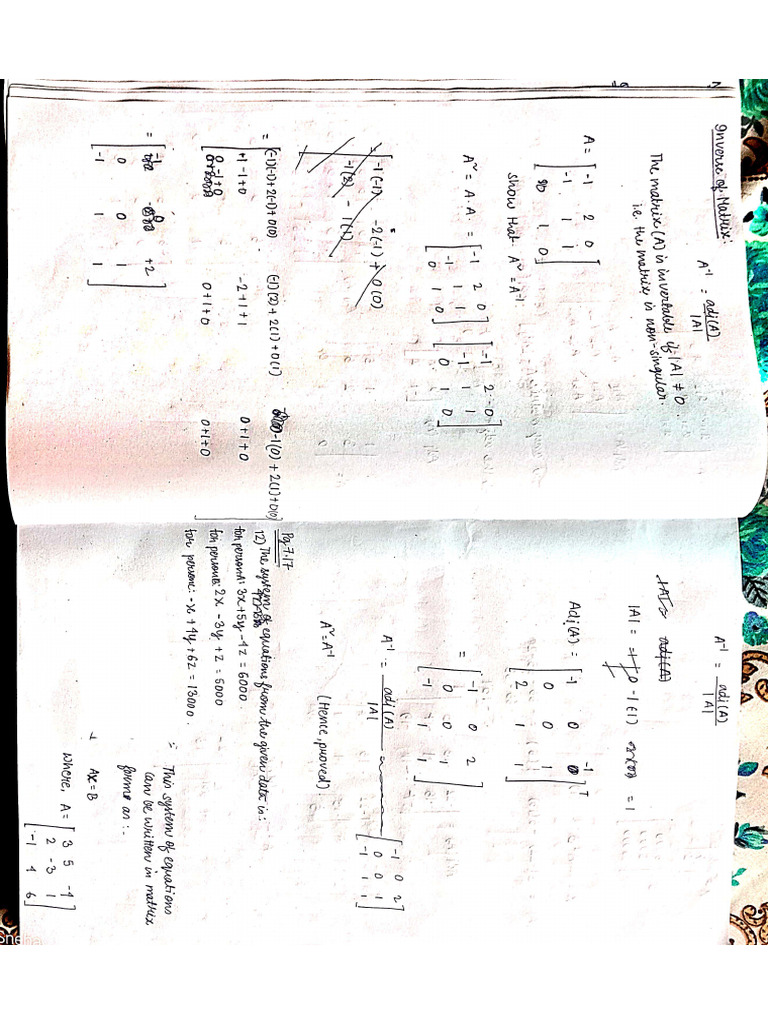 Inverse of Matrix:
A⁻¹ = adj(A)
|A|
The matrix (A) is invertable if |A| ≠ 0.
i.e. the matrix is non-singular.
A = [ -1 2 0
-1 1 1
0 1 0 ]
show that A² = A⁻¹
A² = A.A. = [ -1 2 0 [ -1 2 0
-1 1 1 -1 1 1
0 1 0 ] 0 1 0 ]
= [ -1(-1) -2(-1) + 0(0)
-1(2) - 1(1)
= [ (-1)(-1)+2(-1)+0(0) (-1)(2)+2(1)+0(1) -1(0)+2(1)+0(0)
+1-1+0 -2+1+1 0+1+0
0-1+0 0+1+0 0+1+0 ]
= [ -1 0 +2
0 0 1
-1 1 1 ]
A⁻¹ = adj(A)
|A|
|A| = adj(A)
|A| = -1 0 -1(-1) = 1
Adj(A) = [ -1 0 -1
0 0 1
2 1 1 ]ᵀ
= [ -1 0 2
0 0 1
-1 1 1 ]
A⁻¹ = adj(A) [ -1 0 2
|A| 0 0 1
-1 1 1 ]
A² = A⁻¹ (Hence, proved)
Pg 7.17
12) The system of equations from the given data is:-
for person A: 3x+5y-4z = 6000
for person B: 2x-3y+z = 5000
for person C: -x+4y+6z = 13000.
∴ This system of equations
can be written in matrix
forms as:-
Ax = B
where, A = [ 3 5 -4
2 -3 1
-1 4 6 ]
Sneha